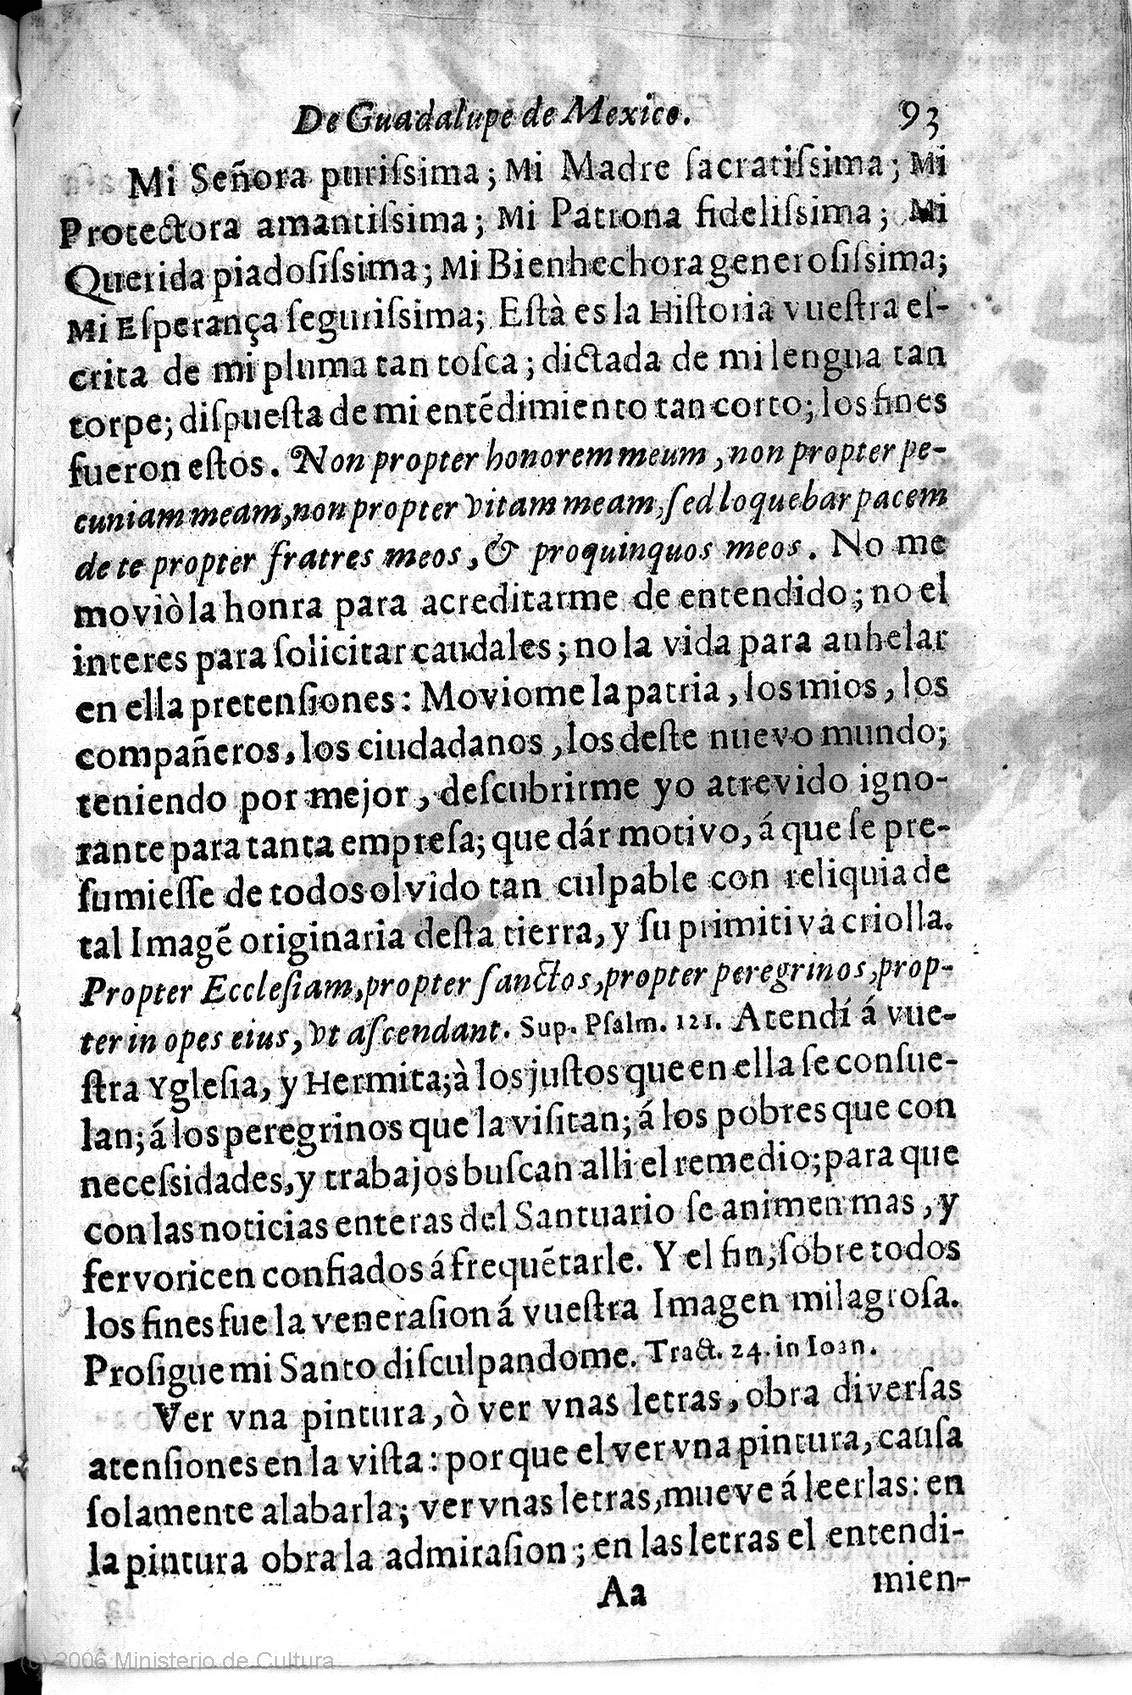 De Guadalupe de Mexico. 93
Mi Señora puriſsima; Mi Madre ſacratiſsima; Mi
Protectora amantiſsima; Mi Patrona fideliſsima; Mi
Querida piadoſiſsima; Mi Bienhechora generoſiſsima;
Mi Eſperança ſeguriſsima; Eſtà es la Hiſtoria vueſtra eſ-
crita de mi pluma tan toſca; dictada de mi lengua tan
torpe; diſpueſta de mi entẽdimiento tan corto; los fines
fueron eſtos. Non propter honorem meum, non propter pe-
cuniam meam, non propter vitam meam, ſed loquebar pacem
de te propter fratres meos, & proquinquos meos. No me
moviò la honra para acreditarme de entendido; no el
interes para ſolicitar caudales; no la vida para anhelar
en ella pretenſiones: Moviome la patria, los mios, los
compañeros, los ciudadanos, los deſte nuevo mundo;
teniendo por mejor, deſcubrirme yo atrevido igno-
rante para tanta empreſa; que dár motivo, á que ſe pre-
ſumieſſe de todos olvido tan culpable con reliquia de
tal Imagẽ originaria deſta tierra, y ſu primitiva criolla.
Propter Eccleſiam, propter ſanctos, propter peregrinos, prop-
ter in opes eius, vt aſcendant. Sup. Pſalm. 121. Atendí á vue-
ſtra Ygleſia, y Hermita; à los juſtos que en ella ſe conſue-
lan; á los peregrinos que la viſitan; á los pobres que con
neceſsidades, y trabajos buſcan alli el remedio; para que
con las noticias enteras del Santuario ſe animen mas, y
fervoricen confiados á frequẽtarle. Y el fin, ſobre todos
los fines fue la veneraſion á vueſtra Imagen milagroſa.
Proſigue mi Santo diſculpandome. Tract. 24. in Ioan.
Ver vna pintura, ò ver vnas letras, obra diverſas
atenſiones en la viſta: por que el ver vna pintura, cauſa
ſolamente alabarla; ver vnas letras, mueve á leerlas: en
la pintura obra la admiraſion; en las letras el entendi-
Aa mien-
(c) 2006 Ministerio de Cultura